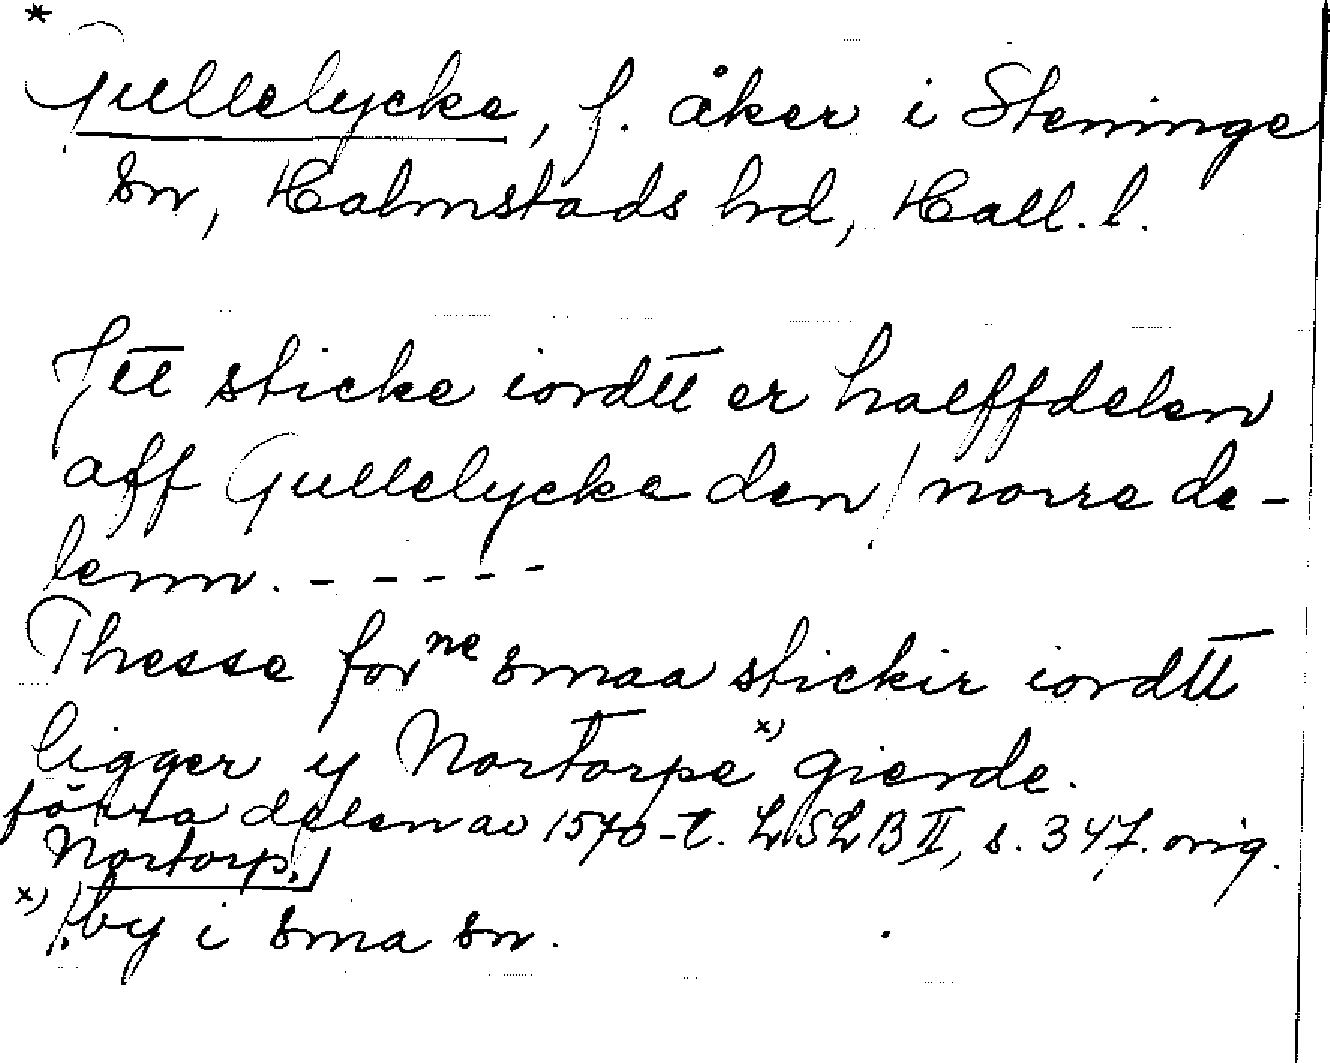 *
Gullelycke, f. åker i Steninge
sn, Halmstads hrd, Hall. l.
Jtt sticke iordtt er halffdelen
aff Gullelycke den / norre de-
lenn. - - - - -
Thesse forⁿᵉ smaa stickir iordtt
ligger y Nortorpe ˣ⁾ gierde.
förra delen av 1570-t. LSLB II, s. 347. orig.
Nortorp,
ˣ⁾ f. by i sma sn.